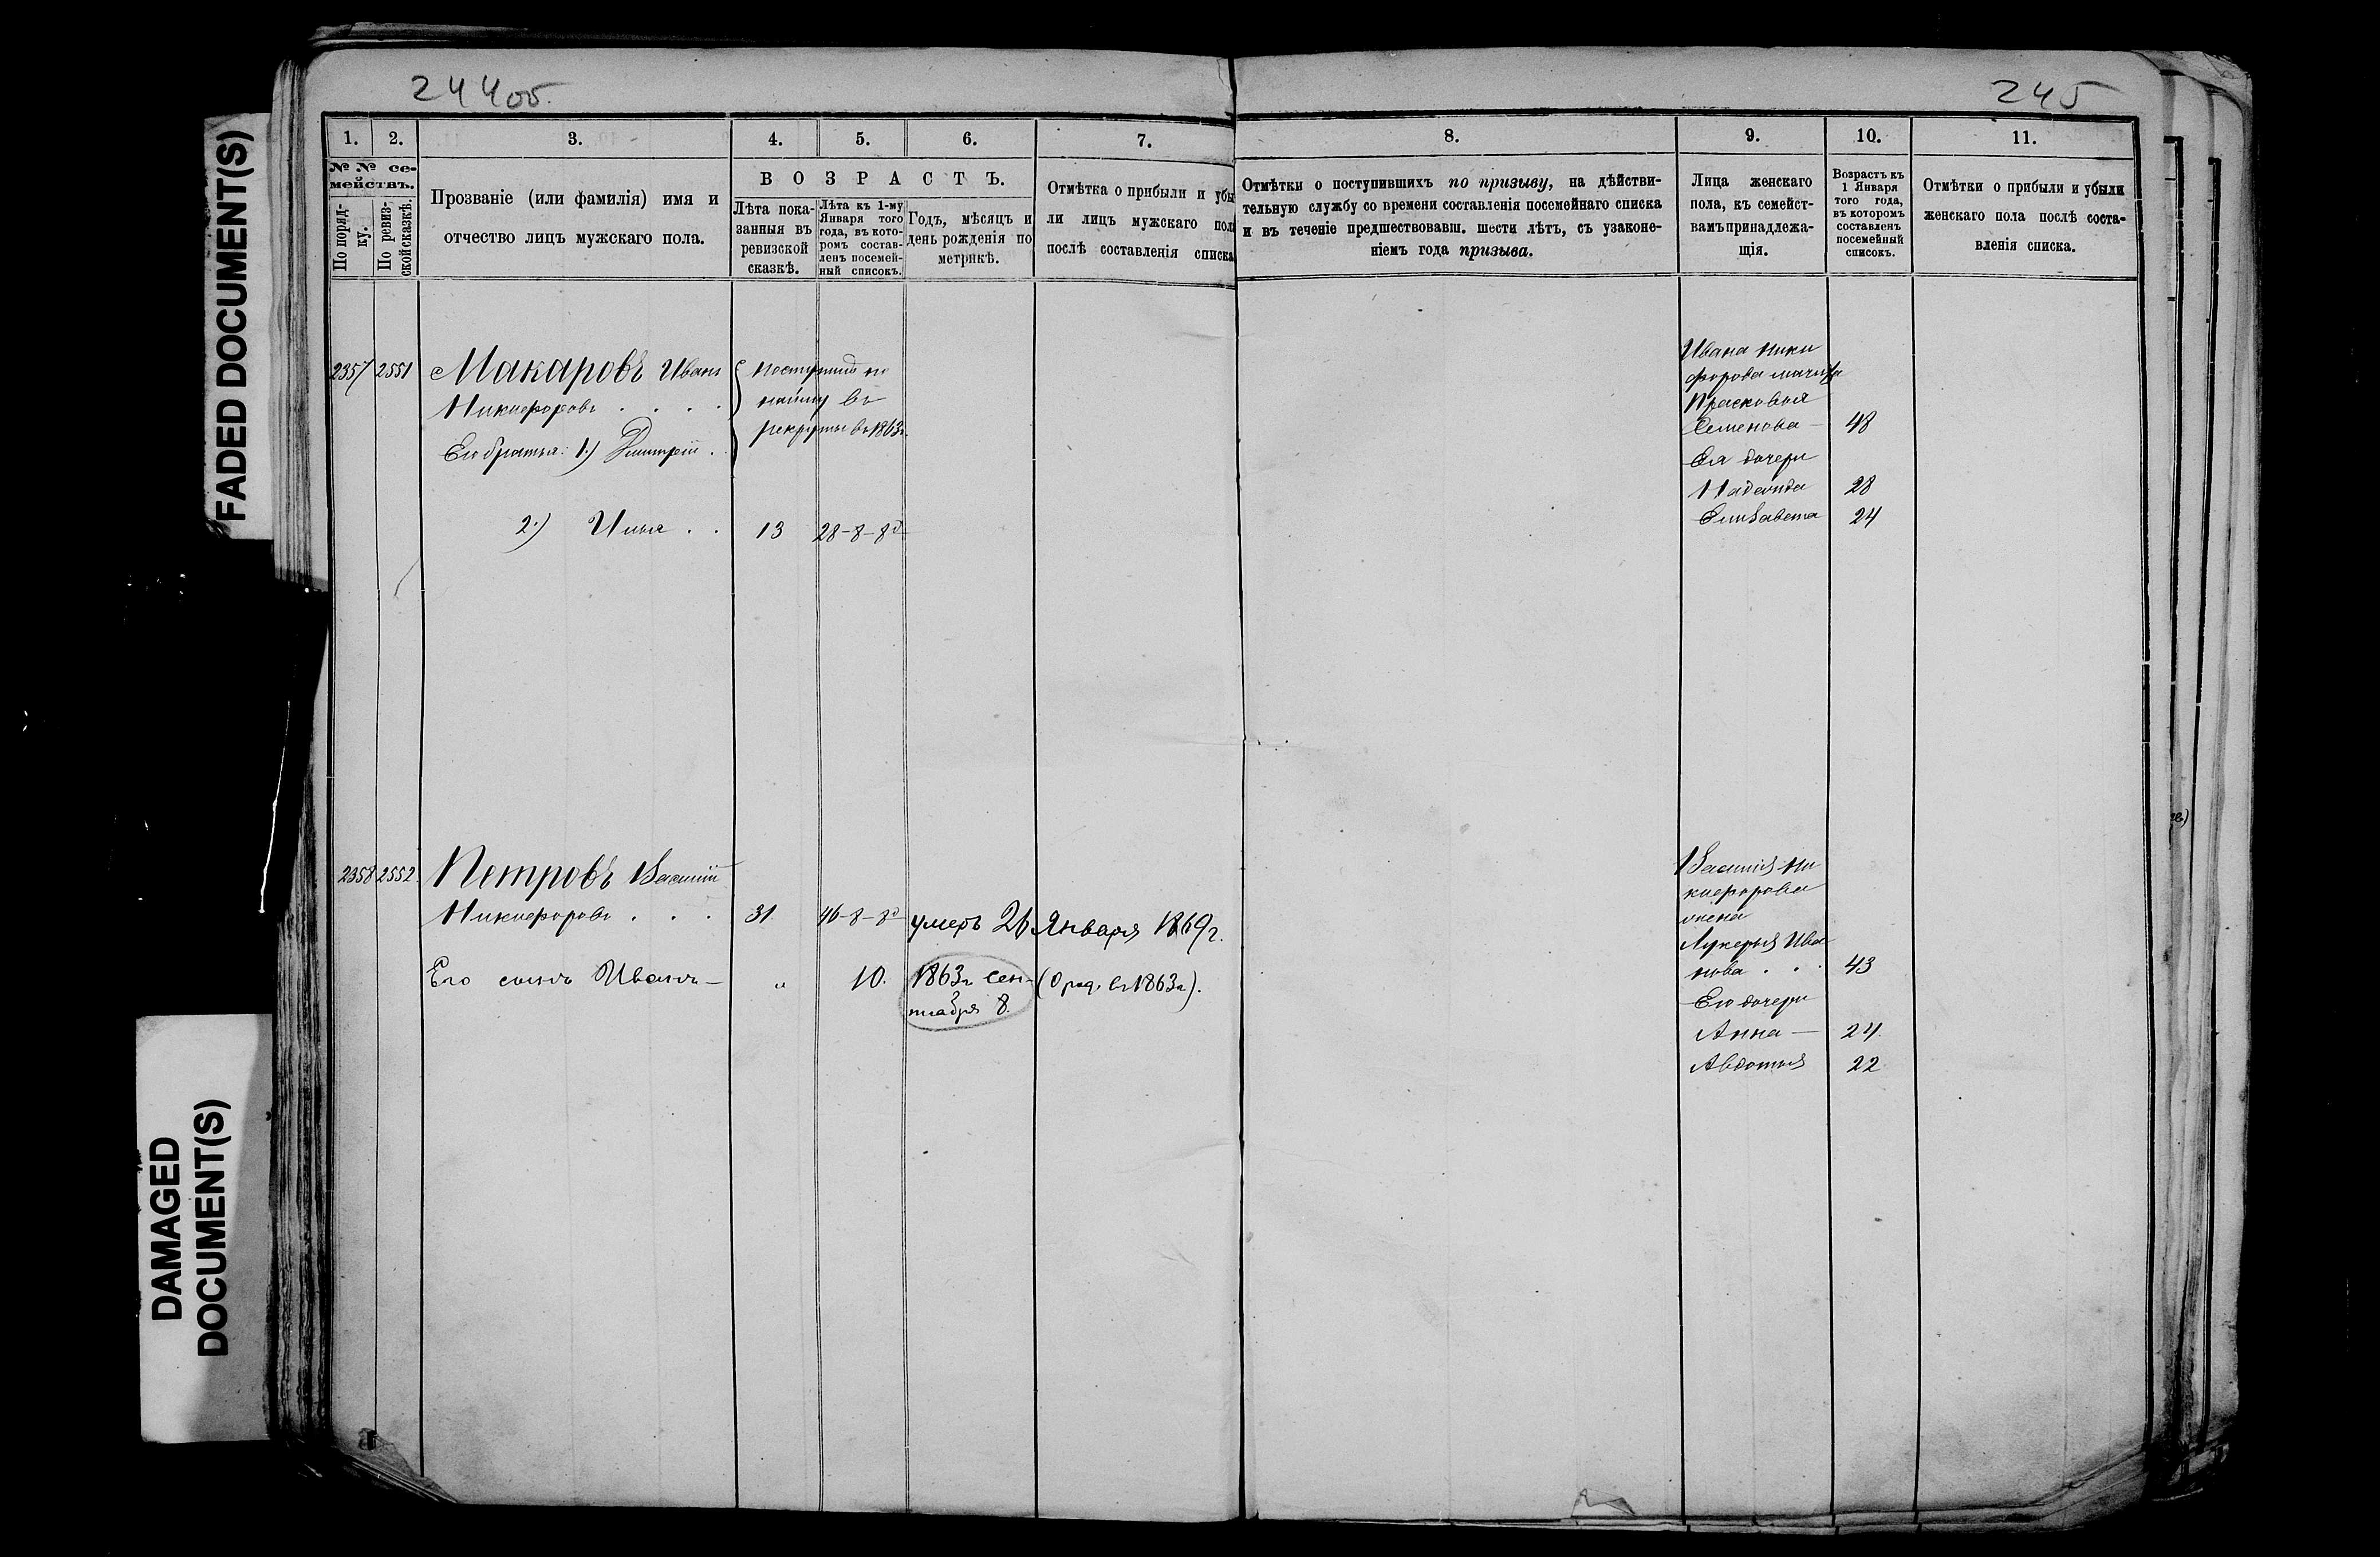 FADED DOCUMENT(S)
DAMAGED
DOCUMENT(S)
244об.
245
1. 2. 3. 4. 5. 6. 7. 8. 9. 10. 11.
№ № се-
мействъ.
По поряд-
ку.
По ревиз-
ской сказкѣ.
Прозваніе (или фамилія) имя и
отчество лицъ мужскаго пола.
ВОЗРАСТЪ.
Лѣта пока-
занныя въ
ревизской
сказкѣ.
Лѣта къ 1-му
Января того
года, въ кото-
ромъ состав-
ленъ посемей-
ный списокъ.
Годъ, мѣсяцъ и
день рожденія по
метрикѣ.
Отмѣтка о прибыли и убы
ли лицъ мужскаго пола
послѣ составленія списка
Отмѣтки о поступившихъ по призыву, на дѣйстви-
тельную службу со времени составленія посемейнаго списка
и въ теченіе предшествовавш. шести лѣтъ, съ узаконе-
ніемъ года призыва.
Лица женскаго
пола, къ семейст-
вамъ принадлежа-
щія.
Возрастъ къ
1 Января
того года,
въ которомъ
составленъ
посемейный
списокъ.
Отмѣтки о прибыли и убыли
женскаго пола послѣ соста-
вленія списка.
2357 2551 Макаровъ Иванъ
Никифоровъ . . . .
Его братья: 1.) Дмитрій .
поступилъ по
найму въ
рекруты въ 1863г.
2.) Илья . . 13 28-8-8д
Ивана Ники
форова мачиха
Прасковья
Семенова — 48
Ея дочери
Надежда 28
Елизавета 24
2358 2552 Петровъ Василий
Никифоровъ . . . 31. 46-8-8д умеръ 26 Января 1869г.
Его сынъ Иванъ — „ 10. 1863г. Сен-
тября 8. (О род. въ 1863г.).
Василія Ни
кифорова
жена
Лукерья Ива
нова . . . 43
Его дочери
Анна — 24.
Авдотья 22